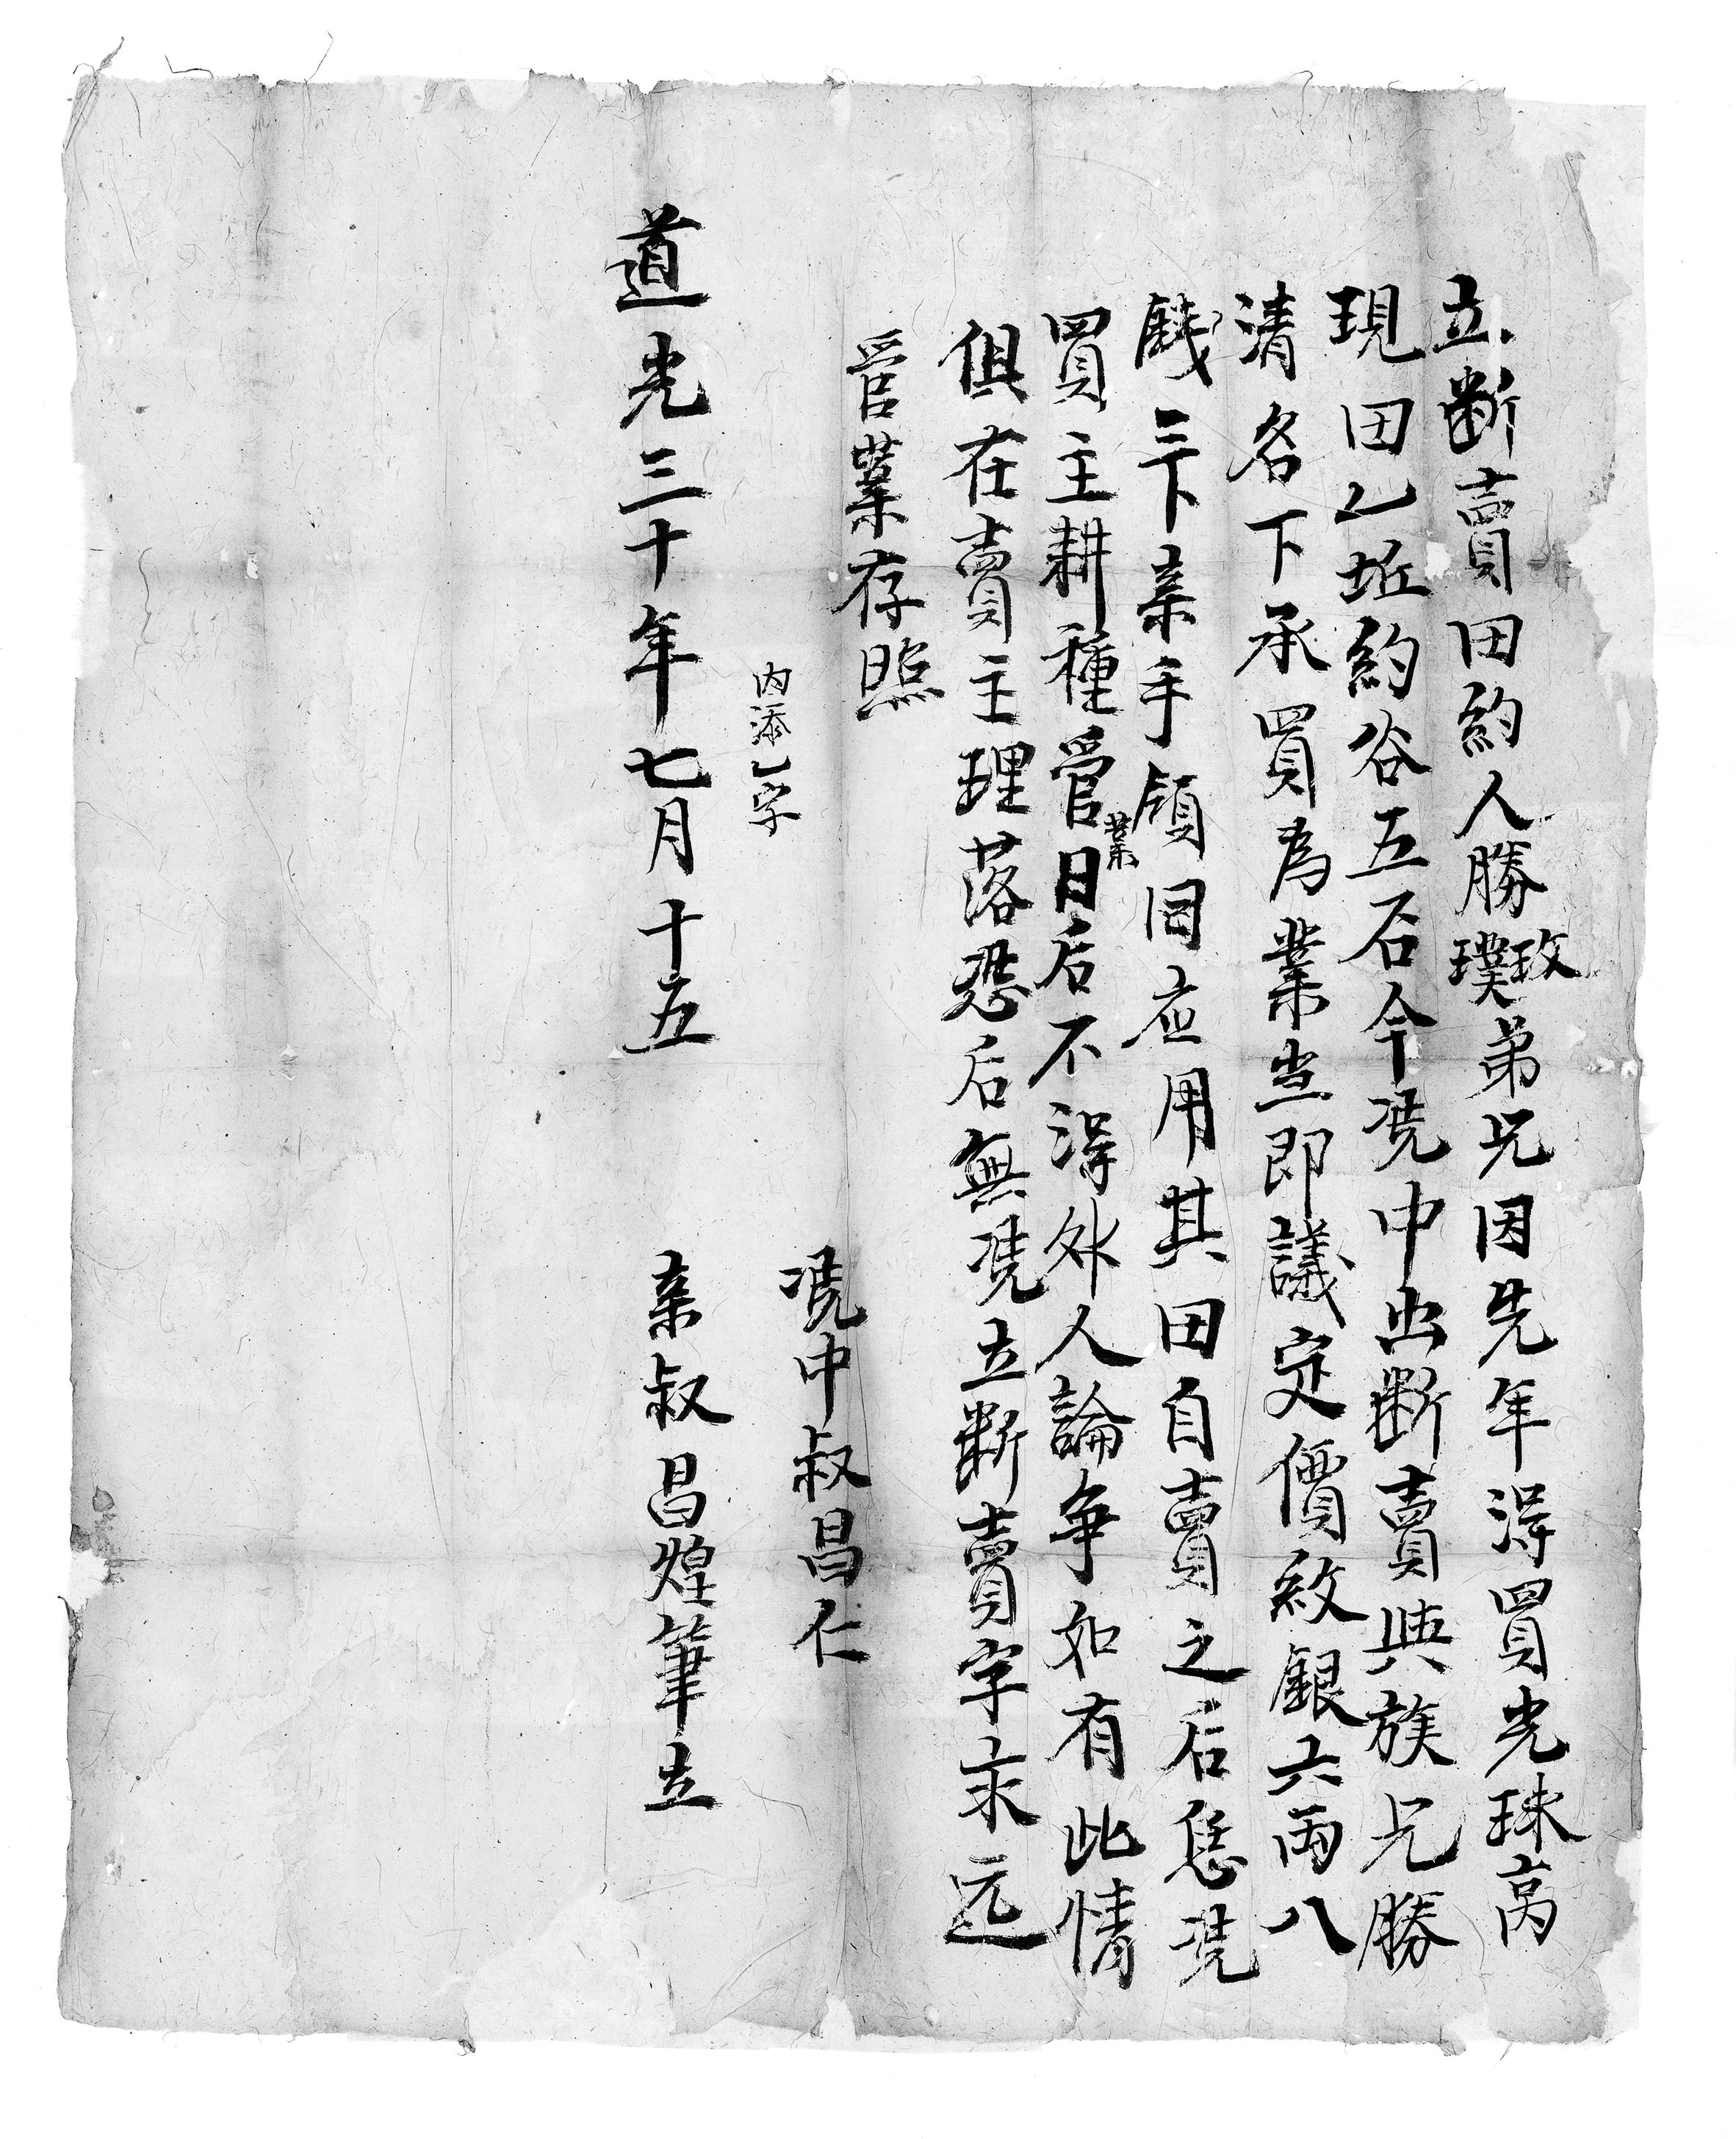 立断賣田約人勝玫璞弟兄因先年淂買光珠高
現田乙坵約谷五石今凴中出断賣與族兄勝
清名下承買為業当即議定價紋銀六兩八
錢三下亲手領囘应用其田自賣之后恁凴
買主耕種管業日后不淂外人論争如有此情
俱在賣主理落恐后無凴立断賣字永远
管業存照
内添乙字
凴中叔昌仁
道光三十年七月十五 亲叔昌煌筆立